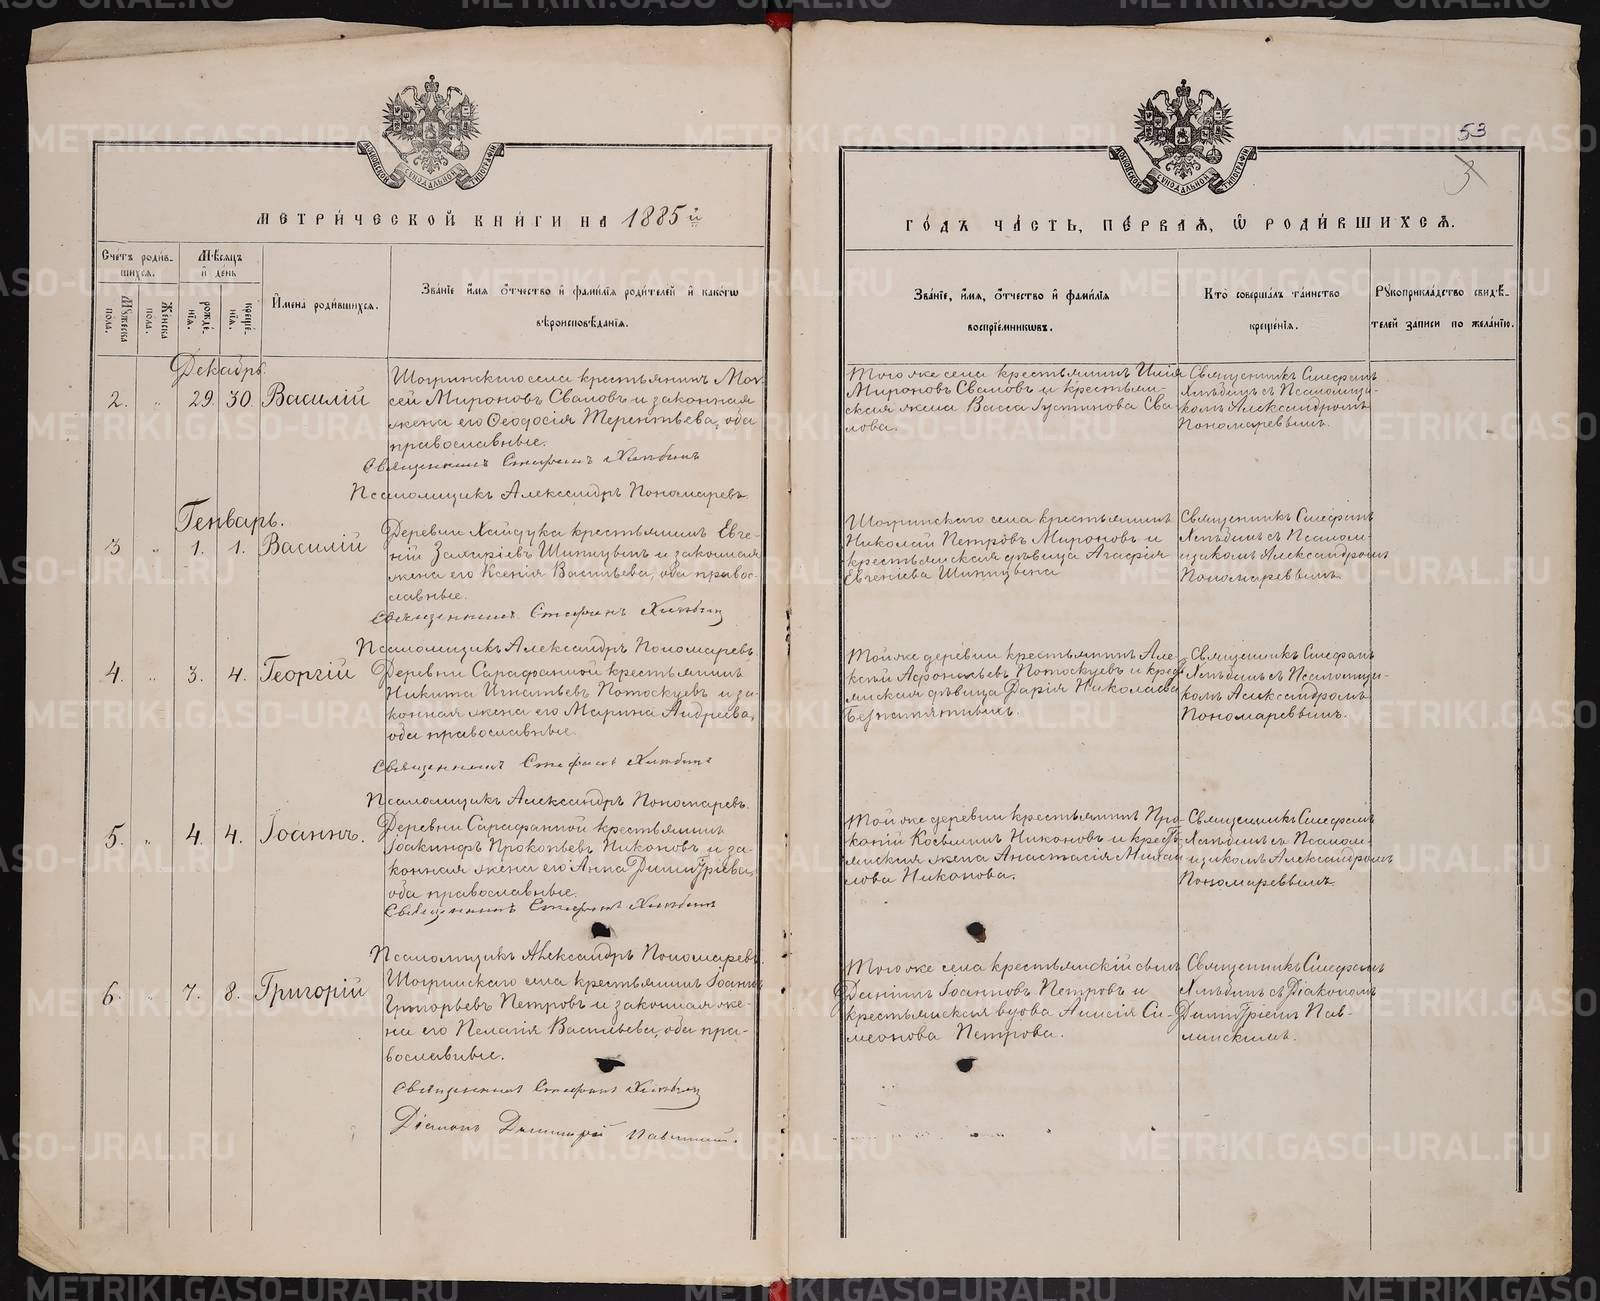 53
3
МОСКОВСКОЙ СУНОДАЛЬНОЙ ТИПОГРАФІИ
МОСКОВСКОЙ СУНОДАЛЬНОЙ ТИПОГРАФІИ
МЕТРИ́ЧЕСКОЙ КНИ́ГИ НА 1885й
ГО́ДЪ ЧА́СТЬ, ПЕ́РВАѦ, Ѡ РОДИ́ВШИХСѦ.
Сче́тъ роди́в-
шихсѧ.
Мꙋжеска пола.
Же́нска пола.
Мѣ́сѧцъ
и де́нь
рожде́нїѧ.
креще́нїѧ.
И҆мена̀ роди́вшихсѧ.
Зва́нїе и҆́мѧ ѻ҆́тчество и҆ фами́лїѧ роди́телей и҆ како́гѡ
вѣроисповѣ́данїѧ.
Зва́нїе, и҆́мѧ, ѻ҆́тчество и҆ фами́лїѧ
воспрїе́мникѡвъ.
Кто̀ соверша́лъ та́инство
креще́нїѧ.
Рꙋкоприкла́дство свидѣ́-
телей за́писи по жела́нїю.
Декабрь.
2. „ 29. 30. Василій
Шогринскаго села крестьянинъ Мои-
сей Мироновъ Сваловъ и законная
жена его Ѳеодосія Терентьева, оба
православные.
Священникъ Стефанъ Хлѣбинъ
Псаломщикъ Александръ Пономаревъ.
Того же села крестьянинъ Илія
Мироновъ Сваловъ и крестьян-
ская жена Васса Густинова Сва-
лова.
Священникъ Стефанъ
Хлѣбинъ съ Псаломщи-
комъ Александромъ
Пономаревымъ.
Генварь.
3 „ 1. 1. Василій
Деревни Хайдука крестьянинъ Евге-
ній Шипицынъ и законная
жена его Ксенія Васильева, оба правос-
лавные.
Священникъ Стефанъ Хлѣбинъ
Псаломщикъ Александръ Пономаревъ.
Шогринскаго села крестьянинъ
Николай Петровъ Мироновъ и
крестьянская дѣвица Агафія
Евгеніева Шипицына
Священникъ Стефанъ
Хлѣбинъ съ Псалом-
щикомъ Александромъ
Пономаревымъ.
4. „ 3. 4. Георгій
Деревни Сарафанной крестьянинъ
Никита Игнатьевъ Потоскуевъ и за-
конная жена его Марина Андреева,
оба православные.
Священникъ Стефанъ Хлѣбинъ
Псаломщикъ Александръ Пономаревъ.
Той же деревни крестьянинъ Але-
ксѣй Потоскуевъ и кресть-
янская дѣвица Дарія Николаева
Безпамятныхъ.
Священникъ Стефанъ
Хлѣбинъ съ Псаломщи-
комъ Александромъ
Пономаревымъ.
5. „ 4. 4. Іоаннъ.
Деревни Сарафанной крестьянинъ
Іоакинфъ Прокопьевъ Никоновъ и за-
конная жена его Анна Димитріева,
оба православные.
Священникъ Стефанъ Хлѣбинъ
Псаломщикъ Александръ Пономаревъ.
Той же деревни крестьянинъ Про-
копій Косьминъ Никоновъ и кресть-
янская жена Анастасія Михаи
лова Никонова.
Священникъ Стефанъ
Хлѣбинъ съ Псалом-
щикомъ Александромъ
Пономаревымъ.
6. „ 7. 8. Григорій
Шогринскаго села крестьянинъ Іоаннъ
Григорьевъ Петровъ и законная же-
на его Пелагія Васильева, оба пра-
вославные.
Священникъ Стефанъ Хлѣбинъ
Діаконъ Димитрій Павлинскій.
Того же села крестьянскій сынъ
Даніилъ Іоанновъ Петровъ и
крестьянская вдова Анисія Си-
меонова Петрова.
Священникъ Стефанъ
Хлѣбинъ съ Діакономъ
Димитріемъ Пав-
линскимъ.
METRIKI.GASO-URAL.RU